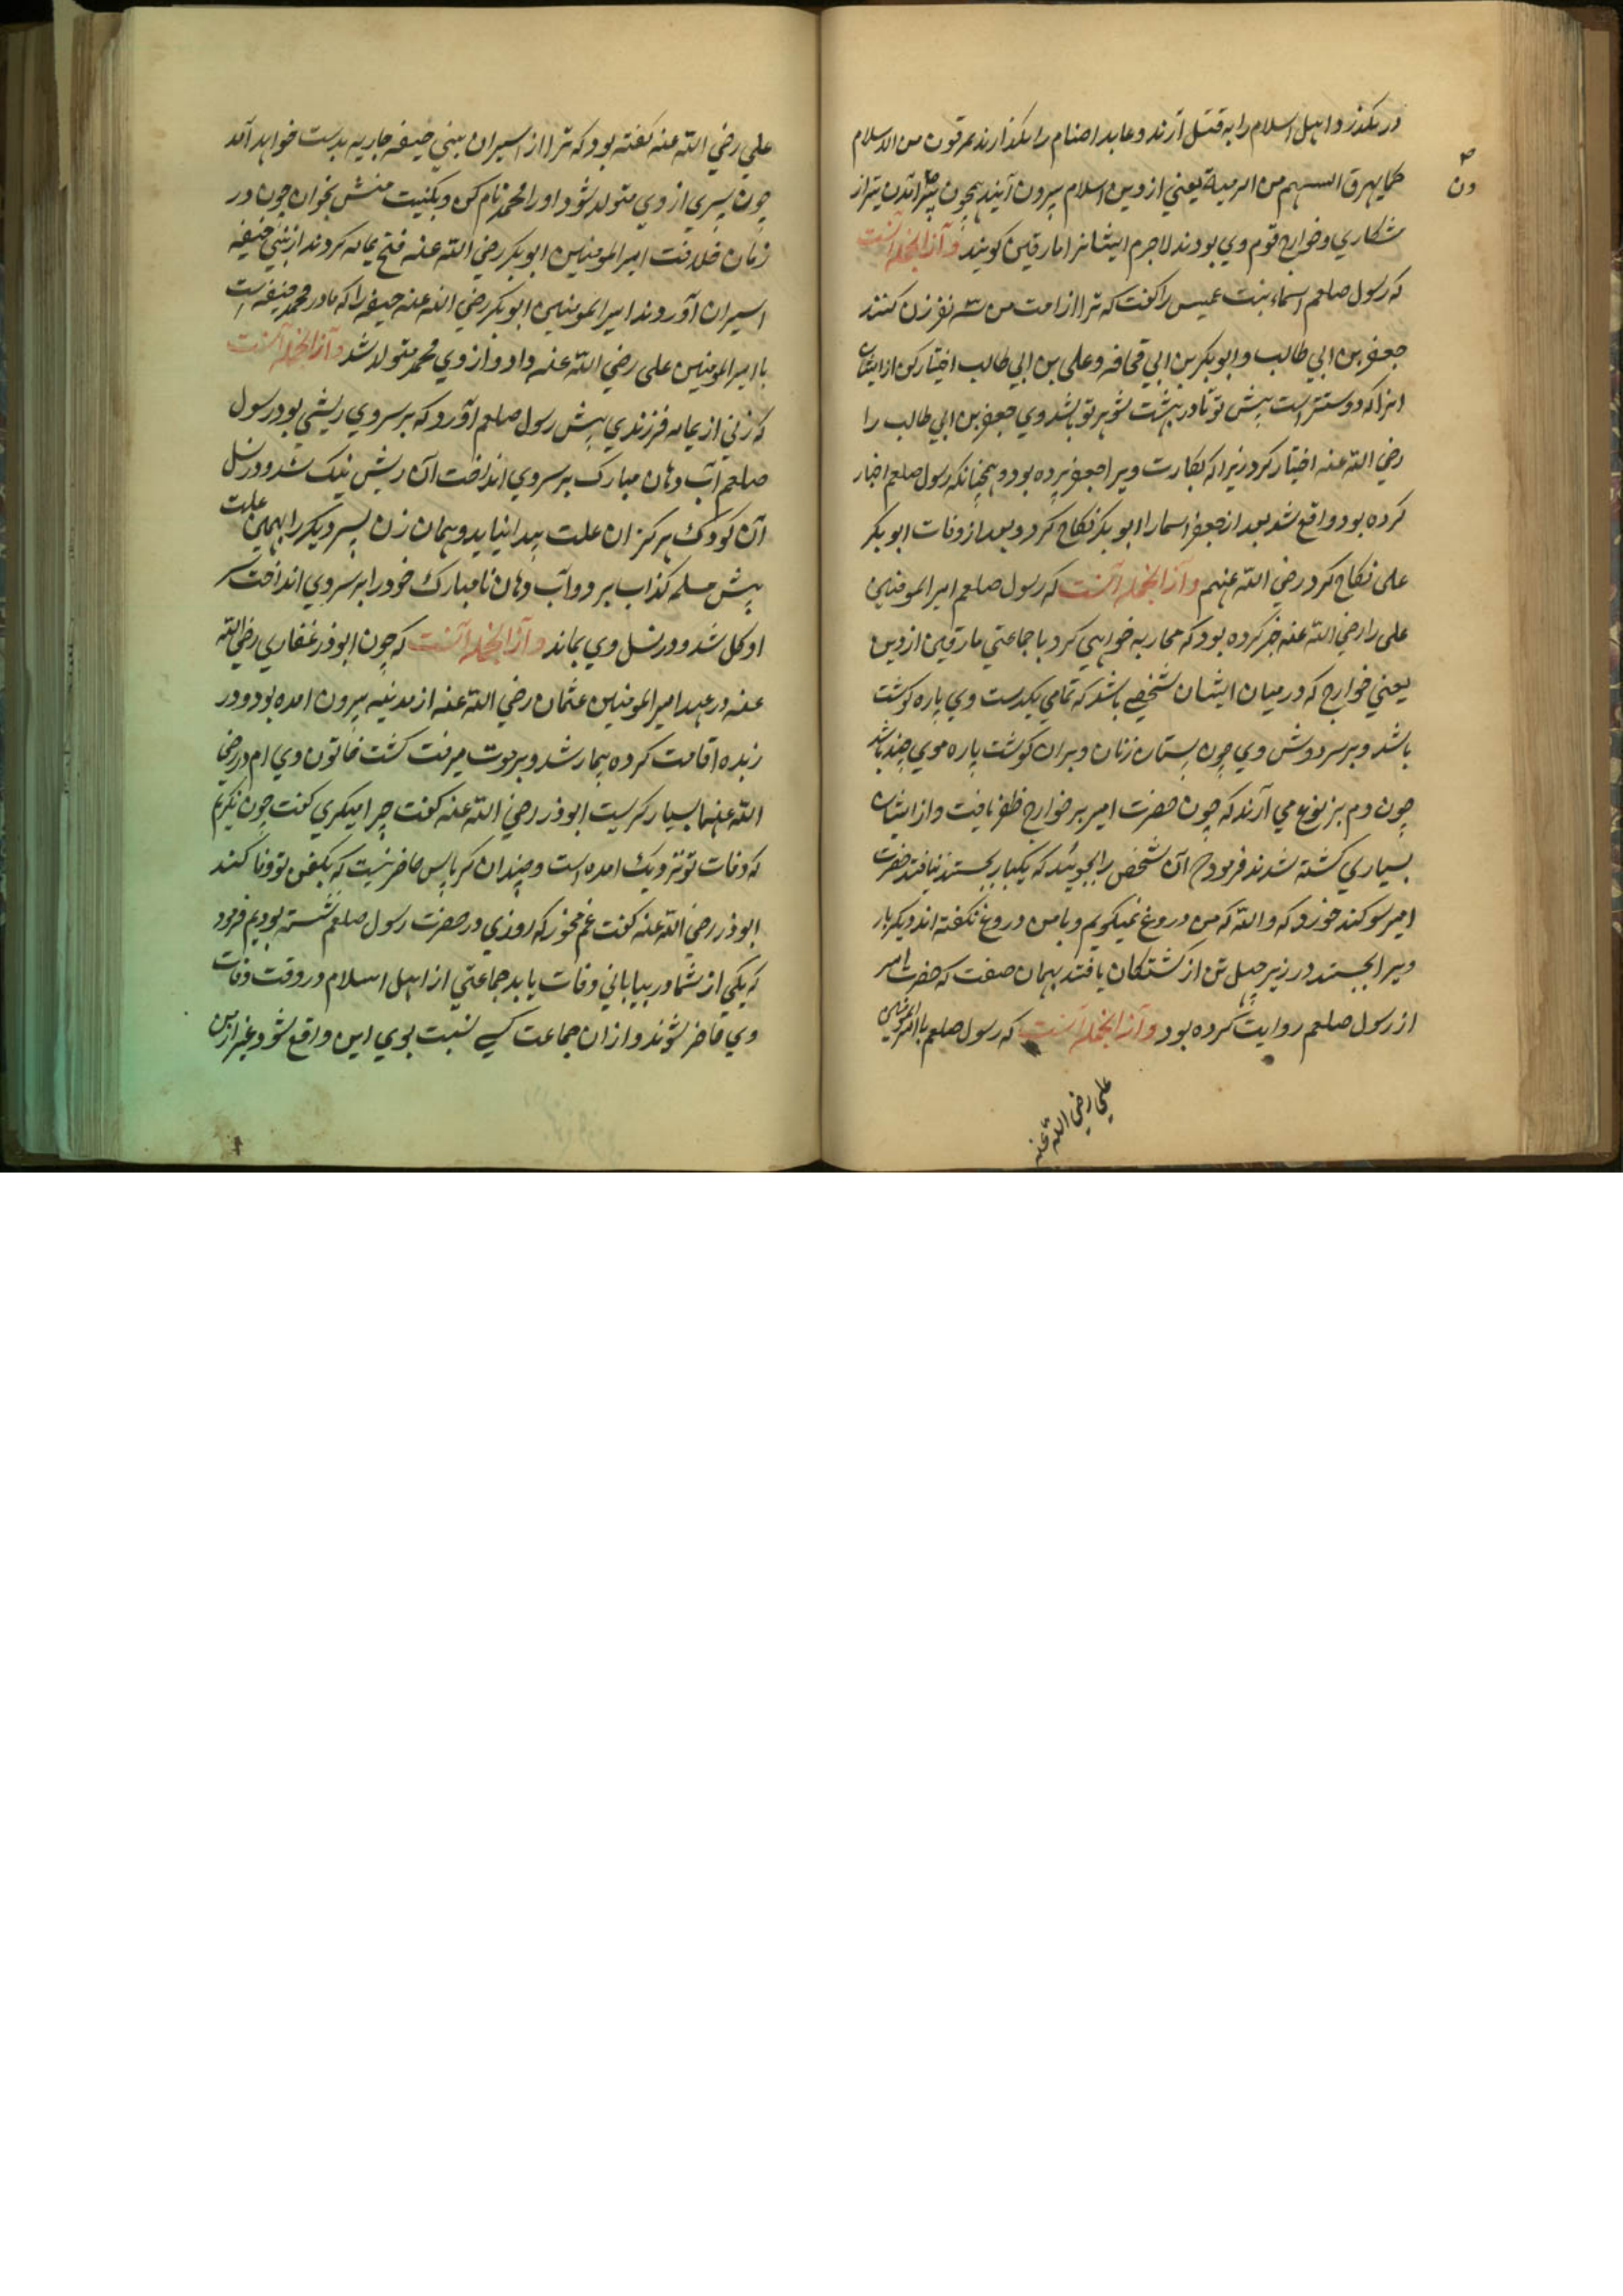 در نکذرد و اهل اسلام را به قتل آرند و عابد اصنام را بکذارند یمرقون من الاسلام
کما یمرق السهم من الرمیة یعنی از دین اسلام بیرون آیند همچون بیرون آمدن تیر از
شکاری و خوارج قوم وی بودند لاجرم ایشانرا مارقین کویند و از انجمله آنست
که رسول صلعم اسماء بنت عمیس را کفت که ترا از امت من سه نفر زن کنند
جعفر بن ابی طالب و ابوبکر بن ابی قحافه و علی بن ابی طالب اختیار کن از ایشان
انرا که دوستتر است پیش تو تا در بهشت شوهر تو باشد وی جعفر بن ابی طالب را
رضی الله عنه اختیار کرد زیرا که بکارت ویرا جعفر برده بود و همچنانکه رسول صلعم اخبار
کرده بود واقع شد بعد از جعفر اسما را ابوبکر نکاح کرد و بعد از وفات ابوبکر
علی نکاح کرد رضی الله عنهم و از انجمله آنست که رسول صلعم امیرالمومنین
علی را رضی الله عنه خبر کرده بود که محاربه خواهی کرد با جماعتی مارقین از دین
یعنی خوارج که در میان ایشان شخصی باشد که تمامی یکدست وی پاره کوشت
باشد و بر سر دوش وی چون پستان زنان و بران کوشت پاره موی چند باشد
چون دم یربوع می آرند که چون حضرت امیر بر خوارج ظفر یافت و از ایشان
بسیاری کشته شدند فرمود که آن شخص را بجوئید که یکبار بجستند نیافتند حضرت
امیر سوکند خورد که والله که من دروغ نمیکویم و با من دروغ نکفته اند دیکر بار
ویرا بجستند در زیر چهل تن از کشتکان یافتند بهمان صفت که حضرت امیر
از رسول صلعم روایت کرده بود و از انجمله آنست که رسول صلعم با امیرالمومنین
علی رضی الله عنه
علی رضی الله عنه کفته بود که ترا از اسیران بنی حنیفه جاریه بدست خواهد آمد
چون پسری از وی متولد شود او را محمد نام کن و بکنیت منش بخوان چون در
زمان خلافت امیرالمومنین ابوبکر رضی الله عنه فتح یمامه کردند از بنی حنیفه
اسیران آوردند امیرالمومنین ابوبکر رضی الله عنه حنیفه را که مادر محمد حنیفه است
با امیرالمومنین علی رضی الله عنه داد و از وی محمد متولد شد و از انجمله آنست
که زنی از یمامه فرزندی پیش رسول صلعم آورد که بر سر وی ریشی بود رسول
صلعم آب دهان مبارک بر سر وی انداخت آن ریش نیک شد و در نسل
آن کودک هرکز ان علت پیدا نیاید و همان زن پسر دیکر را بهمین علت
پیش مسلمه کذاب برد و آب دهان نامبارک خود را بر سر وی انداخت سر
او کل شد و در نسل وی بماند و از انجمله آنست که چون ابوذر غفاری رضی الله
عنه در عهد امیرالمومنین عثمان رضی الله عنه از مدینه بیرون امده بود و در
ربذه اقامت کرده بیمار شد و بر موت مشرف کشت خاتون وی ام ذر رضی
الله عنها بسیار کریست ابوذر رضی الله عنه کفت چرا میکری کفت چون نکریم
که وفات تو نزدیک امده است و چندان کرباس حاضر نیست که بکفن تو وفا کند
ابوذر رضی الله عنه کفت غم مخور که روزی در حضرت رسول صلعم نشسته بودیم فرمود
که یکی از شما در بیابانی وفات یابد جماعتی از اهل اسلام در وقت وفات
وی حاضر شوند و از ان جماعت کسی نسبت بوی این واقع شود و غیر از من